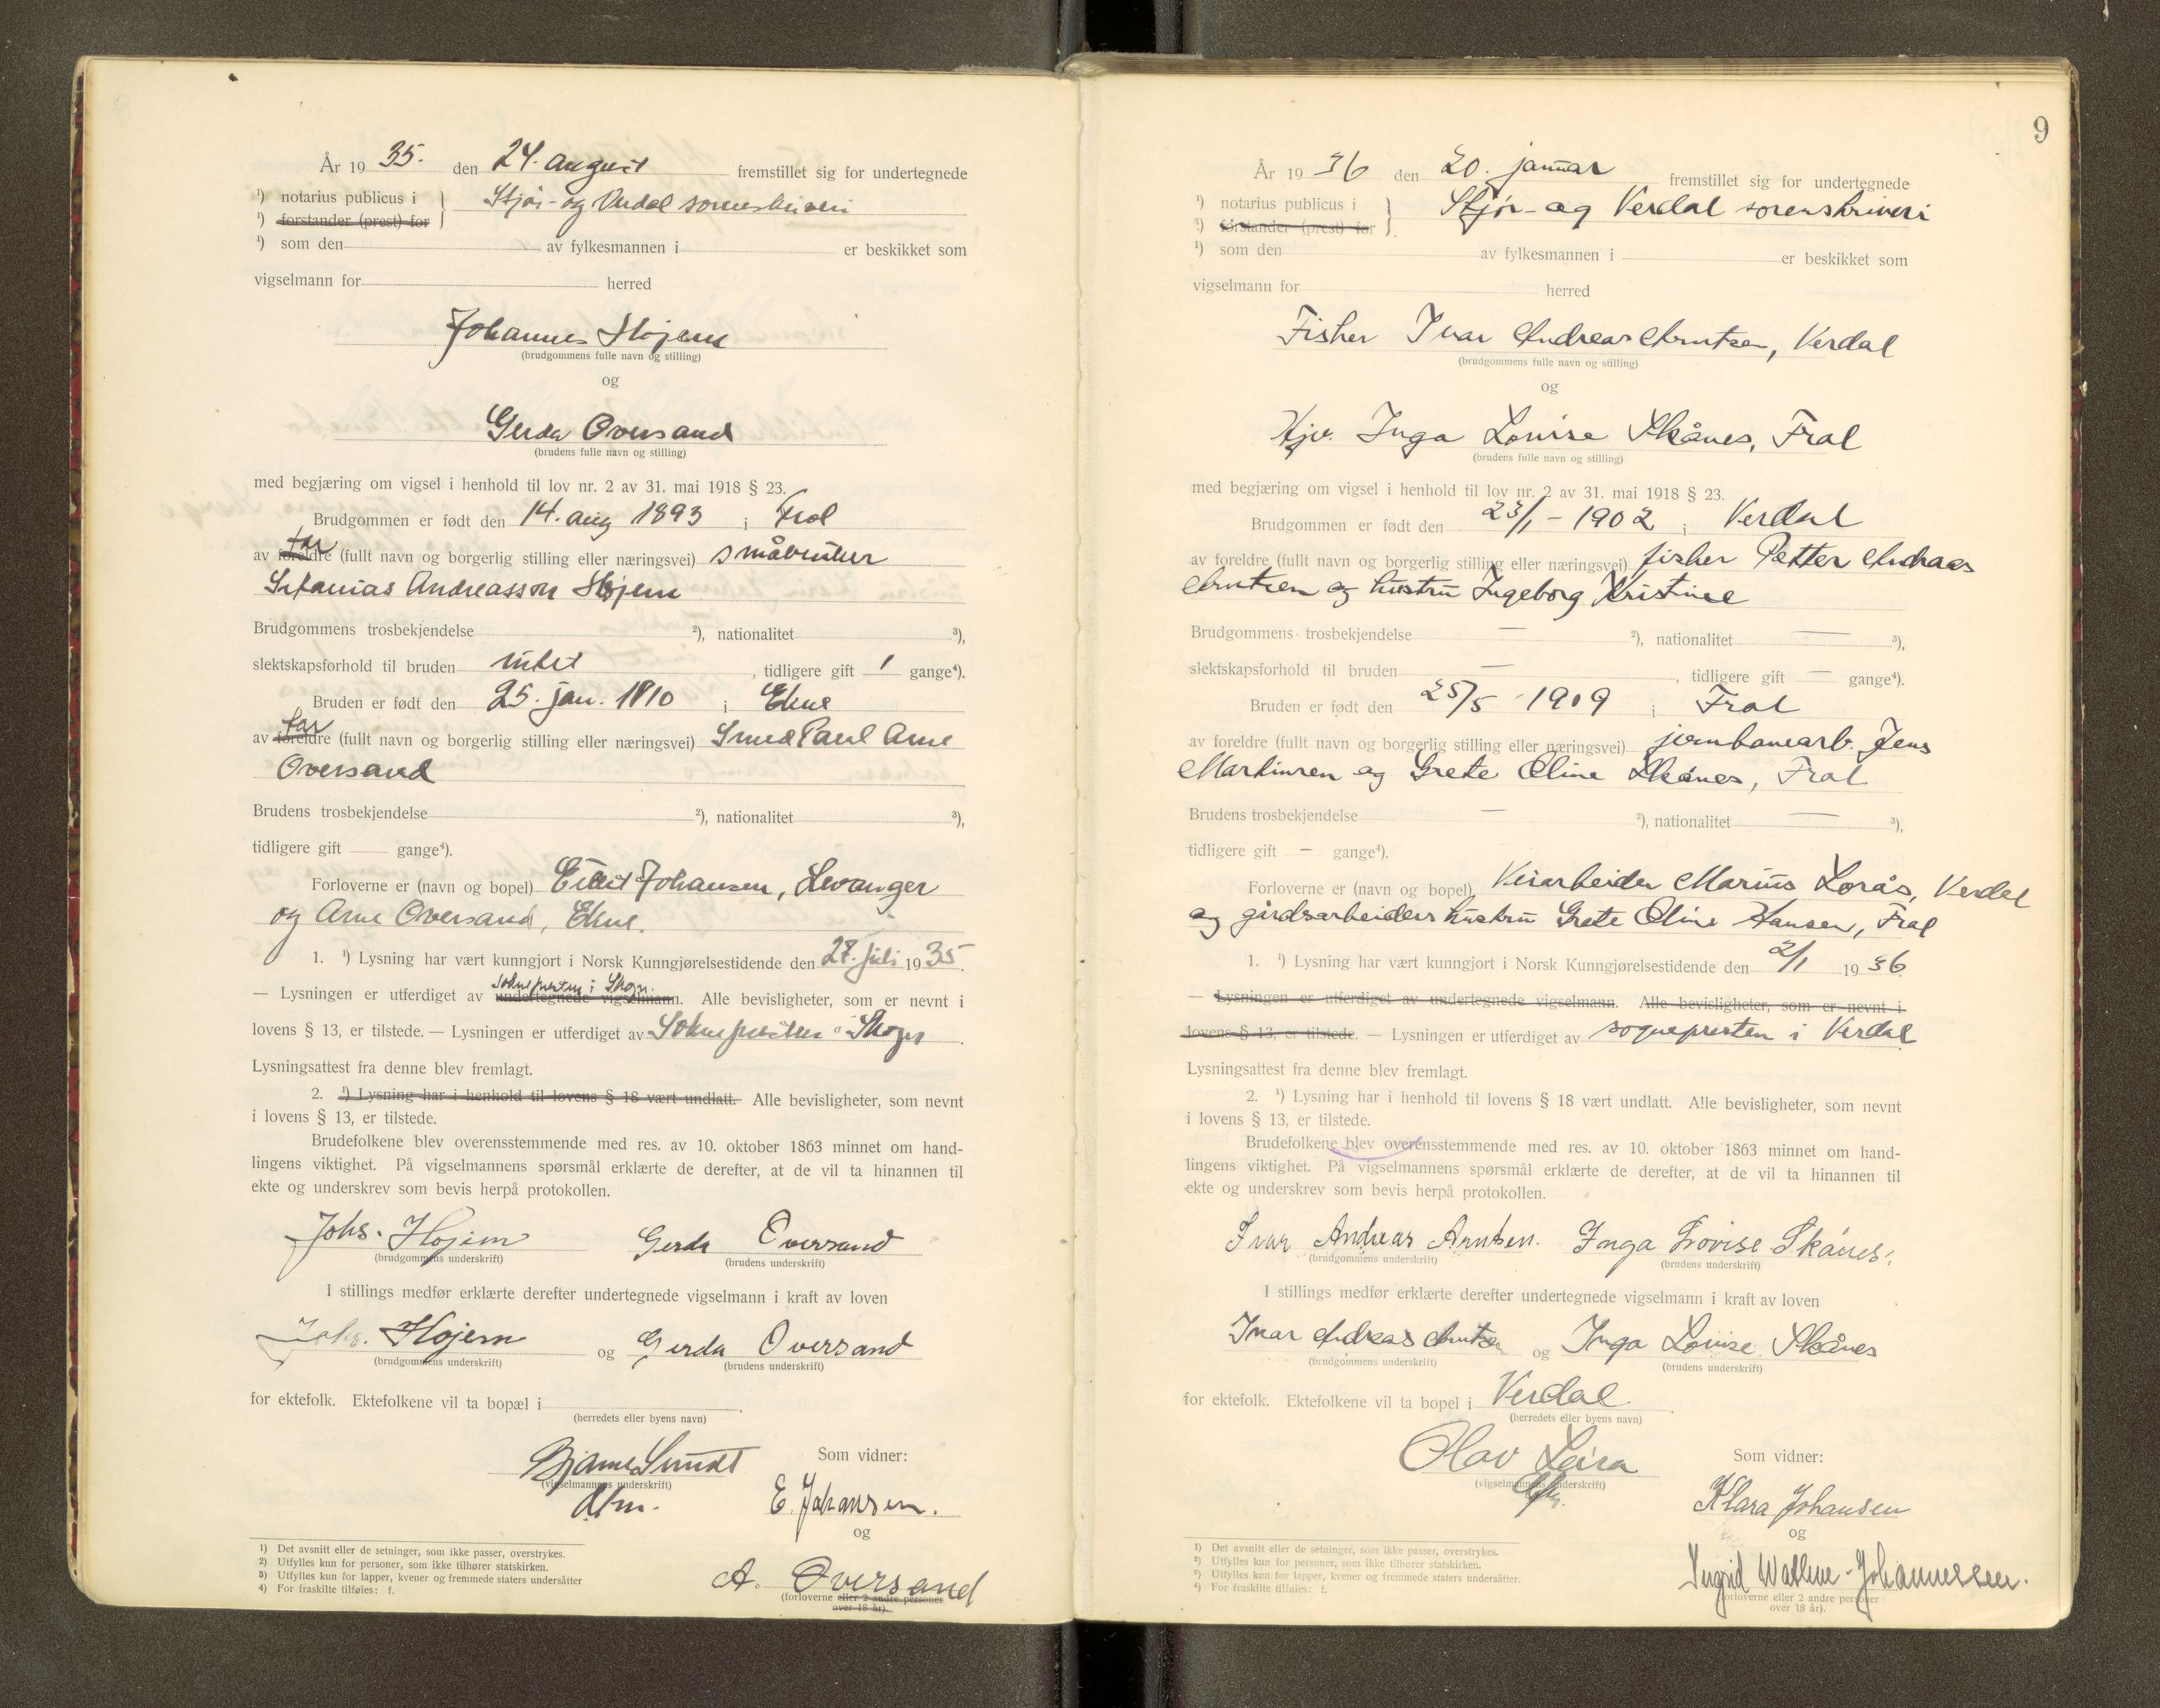 År 1935. den 24. august fremstillet sig for undertegnede
¹) notarius publicus i } Stjør- og Verdal sorenskriveri
¹) forstander (prest) for
¹) som den av fylkesmannen i er beskikket som
vigselmann for herred
Johannes Højem
(brudgommens fulle navn og stilling)
og
Gerda Oversand
(brudens fulle navn og stilling)
med begjæring om vigsel i henhold til lov nr. 2 av 31. mai 1918 § 23.
Brudgommen er født den 14. aug 1893 i Frol
far
av foreldre (fullt navn og borgerlig stilling eller næringsvei) småbruker
Sefanias Andreasson Højem
Brudgommens trosbekjendelse ²), nationalitet ³),
slektskapsforhold til bruden intet, tidligere gift 1 gange⁴).
Bruden er født den 25. jan. 1910 i Ekne
far
av foreldre (fullt navn og borgerlig stilling eller næringsvei) Smed Paul Arne
Oversand
Brudens trosbekjendelse ²), nationalitet ³),
tidligere gift gange⁴).
Forloverne er (navn og bopel) Johansen, Levanger
og Arne Oversand, Ekne.
1. ¹) Lysning har vært kunngjort i Norsk Kunngjørelsestidende den 27. juli 1935.
Sokneprestens i Skogn.
— Lysningen er utferdiget av undertegnede vigselmann. Alle bevisligheter, som er nevnt i
lovens § 13, er tilstede. — Lysningen er utferdiget av Soknepresten i Skogn.
Lysningsattest fra denne blev fremlagt.
2. ¹) Lysning har i henhold til lovens § 18 vært undlatt. Alle bevisligheter, som nevnt
i lovens § 13, er tilstede.
Brudefolkene blev overensstemmende med res. av 10. oktober 1863 minnet om hand-
lingens viktighet. På vigselmannens spørsmål erklærte de derefter, at de vil ta hinannen til
ekte og underskrev som bevis herpå protokollen.
Johs. Højem Gerda Oversand
(brudgommens underskrift) (brudens underskrift)
I stillings medfør erklærte derefter undertegnede vigselmann i kraft av loven
Johs. Højem og Gerda Oversand
(brudgommens underskrift) (brudens underskrift)
for ektefolk. Ektefolkene vil ta bopæl i .
(herredets eller byens navn)
Bjarne Smidt Som vidner:
(vigselmannens underskrift)
E. Johansen.
og
A. Oversand
(forloverne eller 2 andre personer
over 18 år).
1) Det avsnitt eller de setninger, som ikke passer, overstrykes.
2) Utfylles kun for personer, som ikke tilhører statskirken.
3) Utfylles kun for lapper, kvener og fremmede staters undersåtter
4) For fraskilte tilføies: f.
9
År 1936 den 20. januar fremstillet sig for undertegnede
¹) notarius publicus i } Stjør- og Verdal sorenskriveri
¹) forstander (prest) for
¹) som den av fylkesmannen i er beskikket som
vigselmann for herred
Fisker Ivar Andreas Arntsen, Verdal
(brudgommens fulle navn og stilling)
og
Hjv. Inga Lovise Skånes, Frol
(brudens fulle navn og stilling)
med begjæring om vigsel i henhold til lov nr. 2 av 31. mai 1918 § 23.
Brudgommen er født den 23/1 - 1902 i Verdal
av foreldre (fullt navn og borgerlig stilling eller næringsvei) fisker Petter Andreas
Arntsen og hustru Ingeborg Kristine
Brudgommens trosbekjendelse — ²), nationalitet — ³),
slektskapsforhold til bruden —, tidligere gift — gange⁴).
Bruden er født den 25/5 - 1909 i Frol
av foreldre (fullt navn og borgerlig stilling eller næringsvei) jernbanearb. Jens
Martinsen og Grete Oline Skånes, Frol
Brudens trosbekjendelse — ²), nationalitet — ³),
tidligere gift — gange⁴).
Forloverne er (navn og bopel) Veiarbeider Marius Lorås, Verdal
og gårdsarbeiders hustru Grete Oline Hansen, Frol
1. ¹) Lysning har vært kunngjort i Norsk Kunngjørelsestidende den 2/1 1936.
— Lysningen er utferdiget av undertegnede vigselmann. Alle bevisligheter, som er nevnt i
lovens § 13, er tilstede. — Lysningen er utferdiget av sognepresten i Verdal
Lysningsattest fra denne blev fremlagt.
2. ¹) Lysning har i henhold til lovens § 18 vært undlatt. Alle bevisligheter, som nevnt
i lovens § 13, er tilstede.
Brudefolkene blev overensstemmende med res. av 10. oktober 1863 minnet om hand-
lingens viktighet. På vigselmannens spørsmål erklærte de derefter, at de vil ta hinannen til
ekte og underskrev som bevis herpå protokollen.
Ivar Andreas Arntsen. Inga Lovise Skånes.
(brudgommens underskrift) (brudens underskrift)
I stillings medfør erklærte derefter undertegnede vigselmann i kraft av loven
Ivar Andreas Arntsen og Inga Lovise Skånes
(brudgommens underskrift) (brudens underskrift)
for ektefolk. Ektefolkene vil ta bopel i Verdal
(herredets eller byens navn)
Olav Leira Som vidner:
(vigselmannens underskrift)
Klara Johansen
og
Ingrid Wathne-Johannessen.
(forloverne eller 2 andre personer
over 18 år).
1) Det avsnitt eller de setninger, som ikke passer, overstrykes.
2) Utfylles kun for personer, som ikke tilhører statskirken.
3) Utfylles kun for lapper, kvener og fremmede staters undersåtter.
4) For fraskilte tilføies: f.